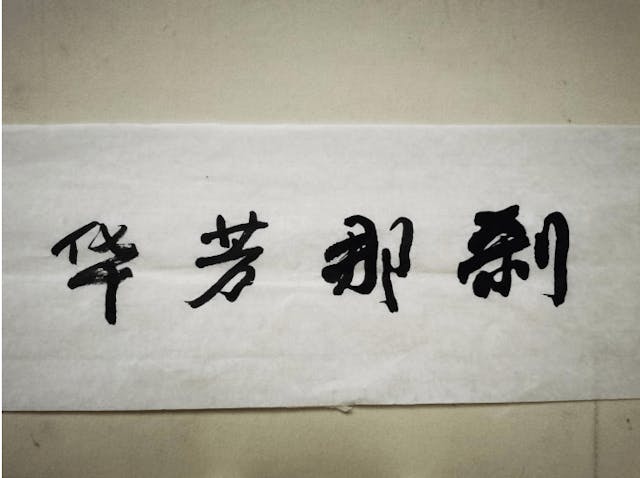 刹那芳华